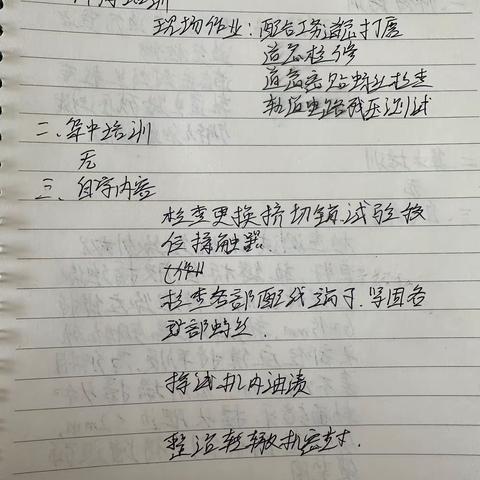 现场作业：配合工务道岔打磨
道岔检修
道岔密贴 检查
轨道电路 压测试
二、集中培训
无
三、自学内容
检查更换挤切销,试验按
位接触器.
检查各部配线端子.紧固各
部螺丝.
擦拭机内油渍
整治转辙机密封.